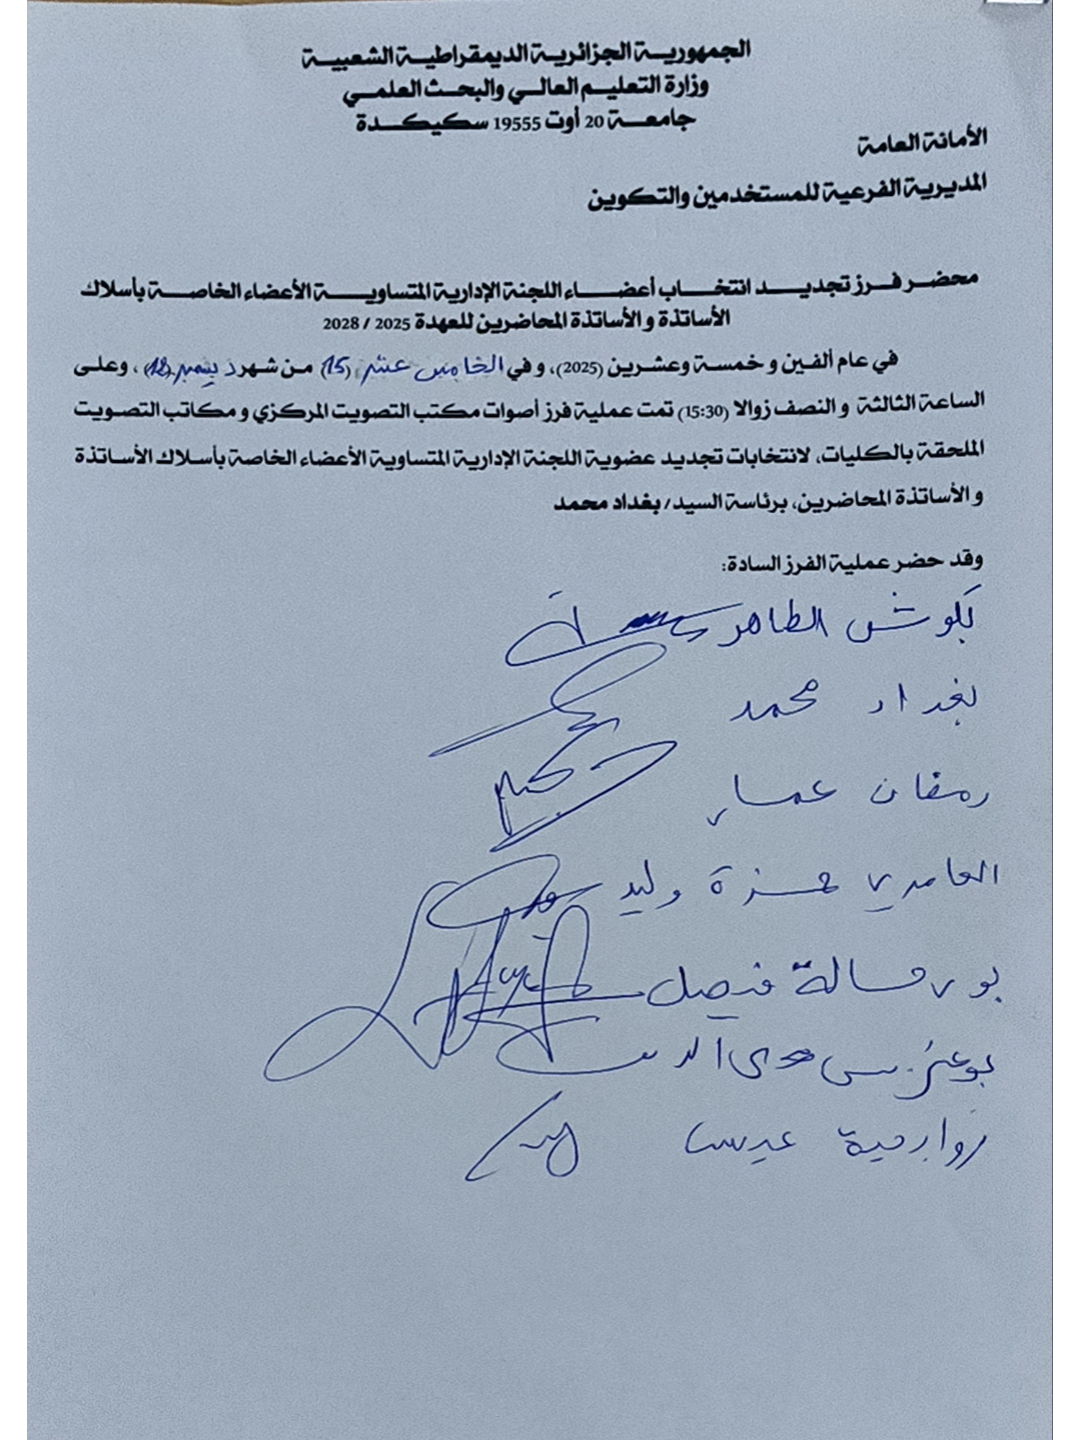 الجمهورية الجزائرية الديمقراطية الشعبية
وزارة التعليم العالي والبحث العلمي
جامعة 20 أوت 19555 سكيكدة
الأمانة العامة
المديرية الفرعية للمستخدمين والتكوين
محضر فرز تجديد انتخاب أعضاء اللجنة الإدارية المتساوية الأعضاء الخاصة بأسلاك
الأساتذة و الأساتذة المحاضرين للعهدة 2025 / 2028
في عام ألفين و خمسة وعشرين (2025)، و في الخامس عشر (15) من شهر ديسمبر (12) ، وعلى
الساعة الثالثة و النصف زوالا (15:30) تمت عملية فرز أصوات مكتب التصويت المركزي و مكاتب التصويت
الملحقة بالكليات، لانتخابات تجديد عضوية اللجنة الإدارية المتساوية الأعضاء الخاصة بأسلاك الأساتذة
و الأساتذة المحاضرين، برئاسة السيد/ بغداد محمد
وقد حضر عملية الفرز السادة:
بكوش الطاهر
بغداد محمد
رمضان عمار
العامري حمزة وليد
بورسالة فيصل
زوارمية عيسى